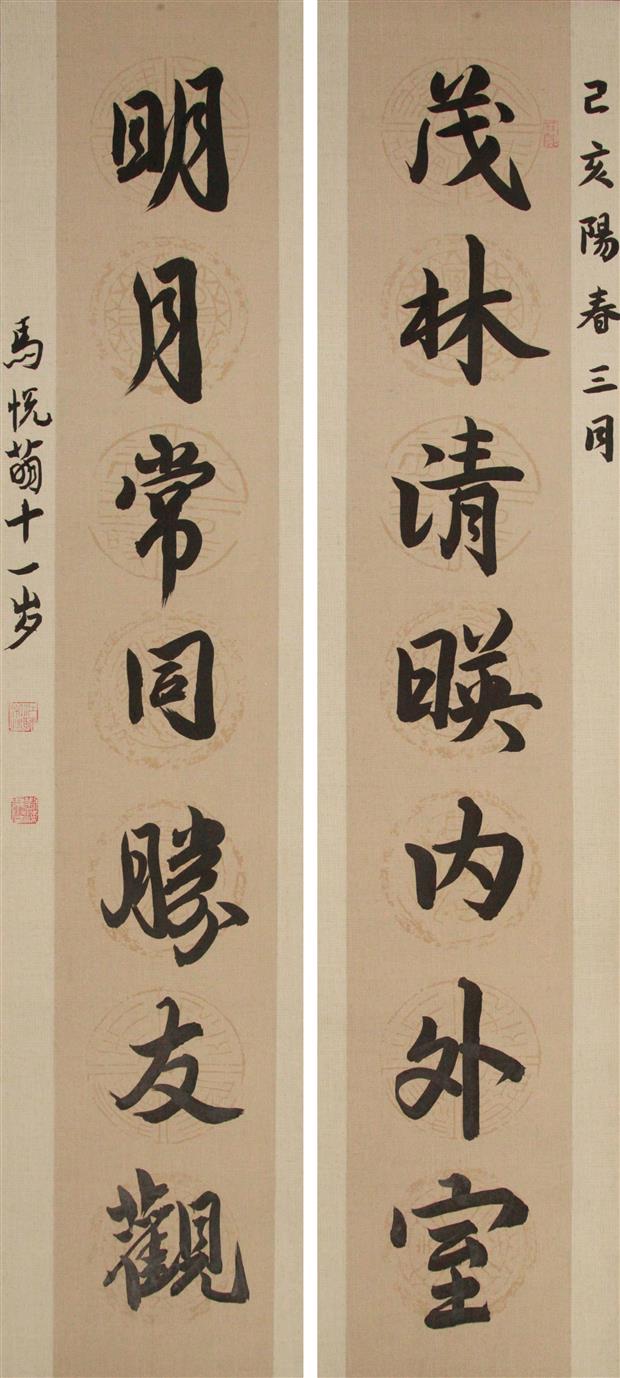 己亥陽春三月
茂林清暎内外室
明月常同勝友觀
馬悦萌十一岁